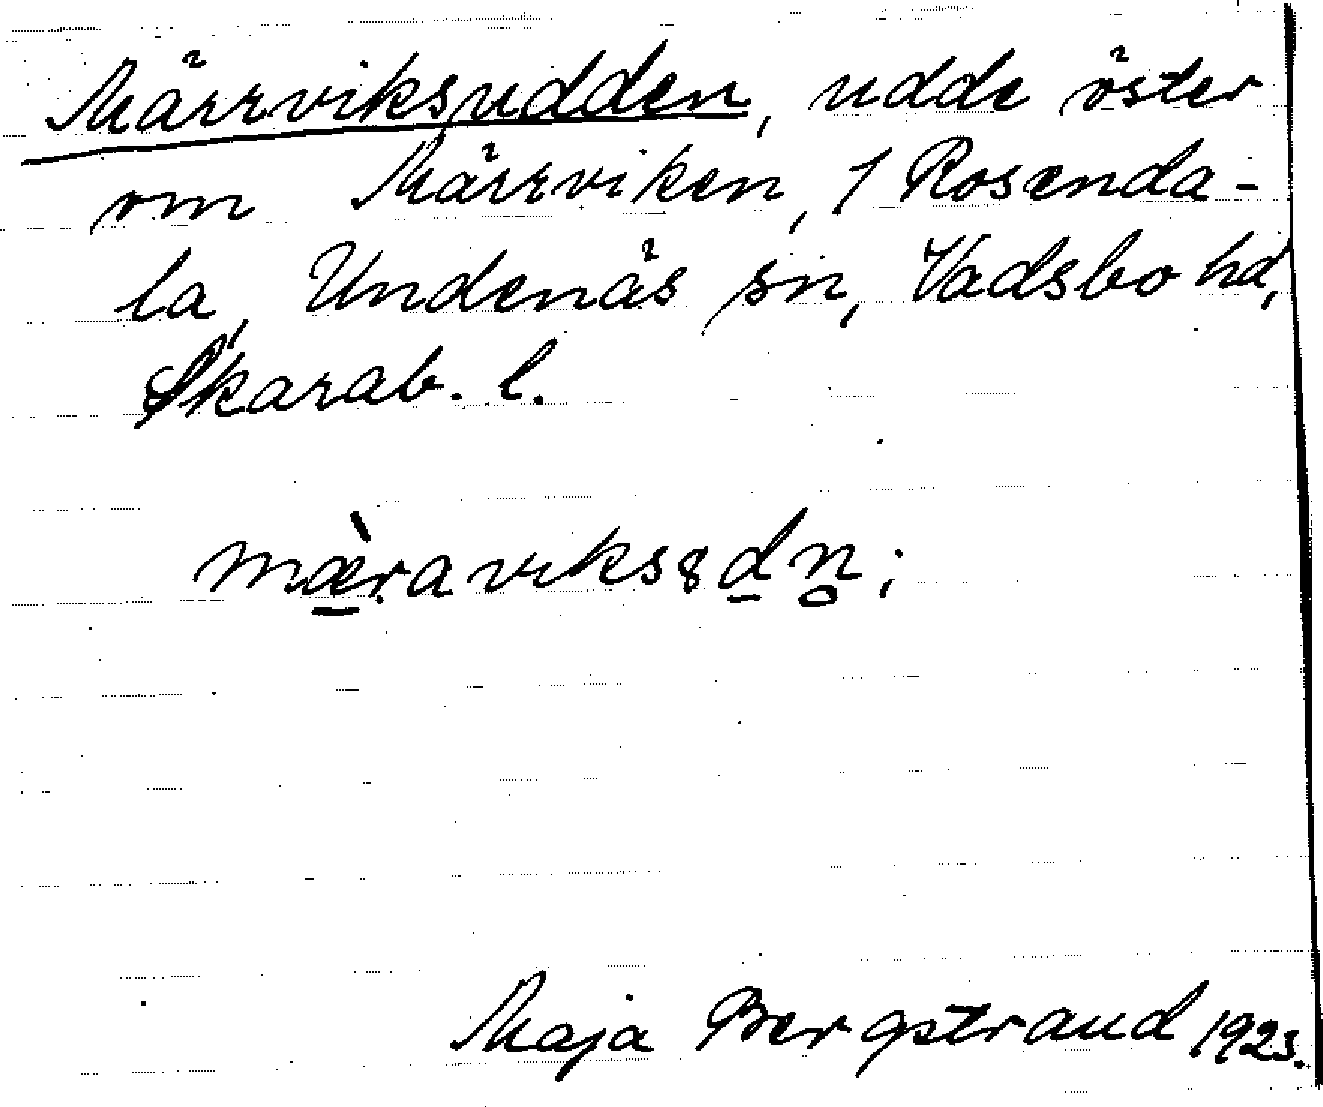 Märrviksudden, udde öster
om Märrviken, 1 Rosenda-
la, Undenäs sn, Vadsbo hd,
Skarab. l.
mæ̀raviksȣdn̥;
Maja Bergstrand 1923.